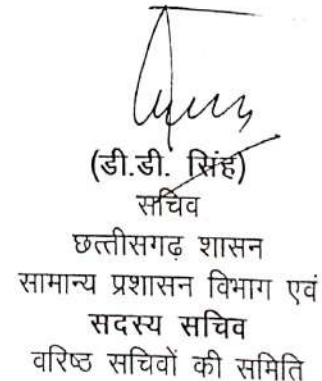 (डी.डी. सिंह)
सचिव
छत्तीसगढ़ शासन
सामान्य प्रशासन विभाग एवं
सदस्य सचिव
वरिष्ठ सचिवों की समिति